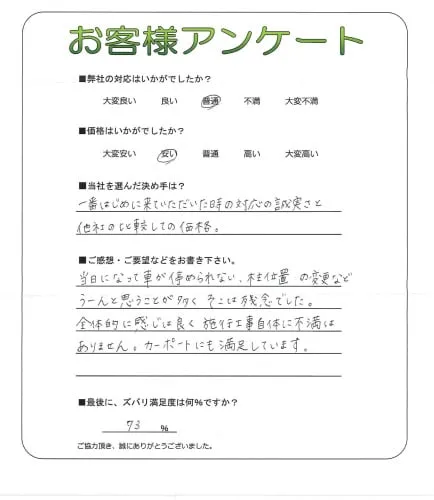 お客様アンケート
■弊社の対応はいかがでしたか?
大変良い 良い 普通 不満 大変不満
■価格はいかがでしたか?
大変安い 安い 普通 高い 大変高い
■当社を選んだ決め手は?
一番はじめに来ていただいた時の対応の誠実さと
他社の比較しての価格。
■ご感想・ご要望などをお書き下さい。
当日になって車が停められない、柱位置 の変更など
うーんと思うことが多く そこは残念でした。
全体的に感じは良く 施行工事自体に不満は
ありません。カーポートにも満足しています。
■最後に、ズバリ満足度は何%ですか?
73 %
ご協力頂き、誠にありがとうございました。